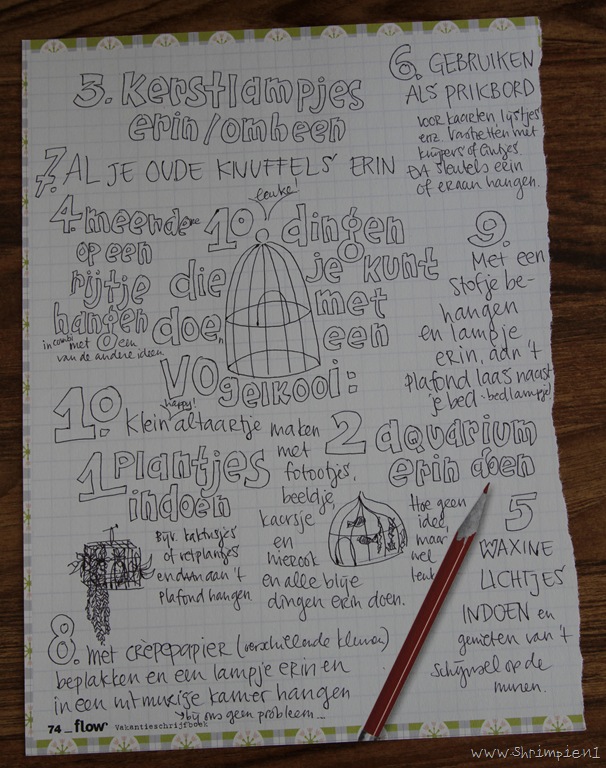 3. Kerstlampjes
erin / omheen
6. GEBRUIKEN
ALS PRIKBORD
voor kaarten, lijstjes
enz. Vastzetten met
knijpers of lintjes.
OA sleutels erin
of eraan hangen.
7. AL JE OUDE KNUFFELS ERIN
leuke!
10 dingen
die je kunt
doen met
een
vogelkooi:
4. meerdere
op een
rijtje
hangen
in combi met een
van de andere ideeën
9.
Met een
stofje be-
hangen
en lampje
erin, aan 't
plafond laag naast
je bed - bedlampje!
10. happy!
Klein altaartje maken
met
fotootjes,
beeldje,
kaarsje
en
wierook
en alle blije
dingen erin doen.
1 Plantjes
indoen
Bijv. kaktusjes
of vetplantjes
en dan aan 't
plafond hangen
2 aquarium
erin doen
Hoe geen
idee,
maar
wel
leuk
5
WAXINE
LICHTJES
INDOEN en
genieten van 't
schijnsel op de
muren.
8. met crèpepapier (verschillende kleuren)
beplakken en een lampje erin en
in een nitmuzige kamer hangen
bij ons geen probleem...
74 _ flow Vakantieschrijfboek
www.Shrimpien1